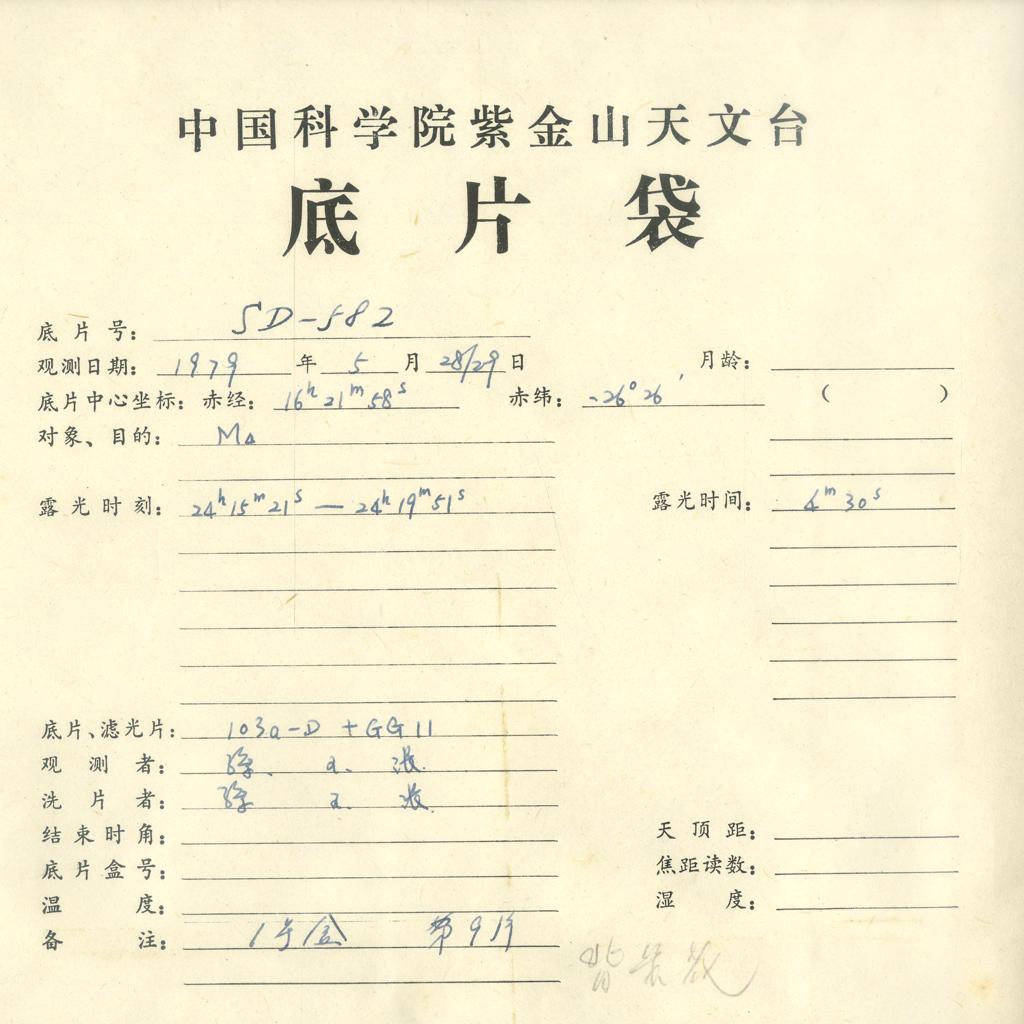 中国科学院紫金山天文台
底片袋
底片号： SD-582
观测日期： 1979 年 5 月 28/29 日 月龄：
底片中心坐标： 赤经： 16h 21m 58s 赤纬： -26° 26′ （ ）
对象、目的： M4
露光时刻： 24h 15m 21s — 24h 19m 51s 露光时间： 4m 30s
底片、滤光片： 103a-D + GG11
观测者：
洗片者：
结束时角： 天顶距：
底片盒号： 焦距读数：
温度： 湿度：
备注： 1号盒 第9片